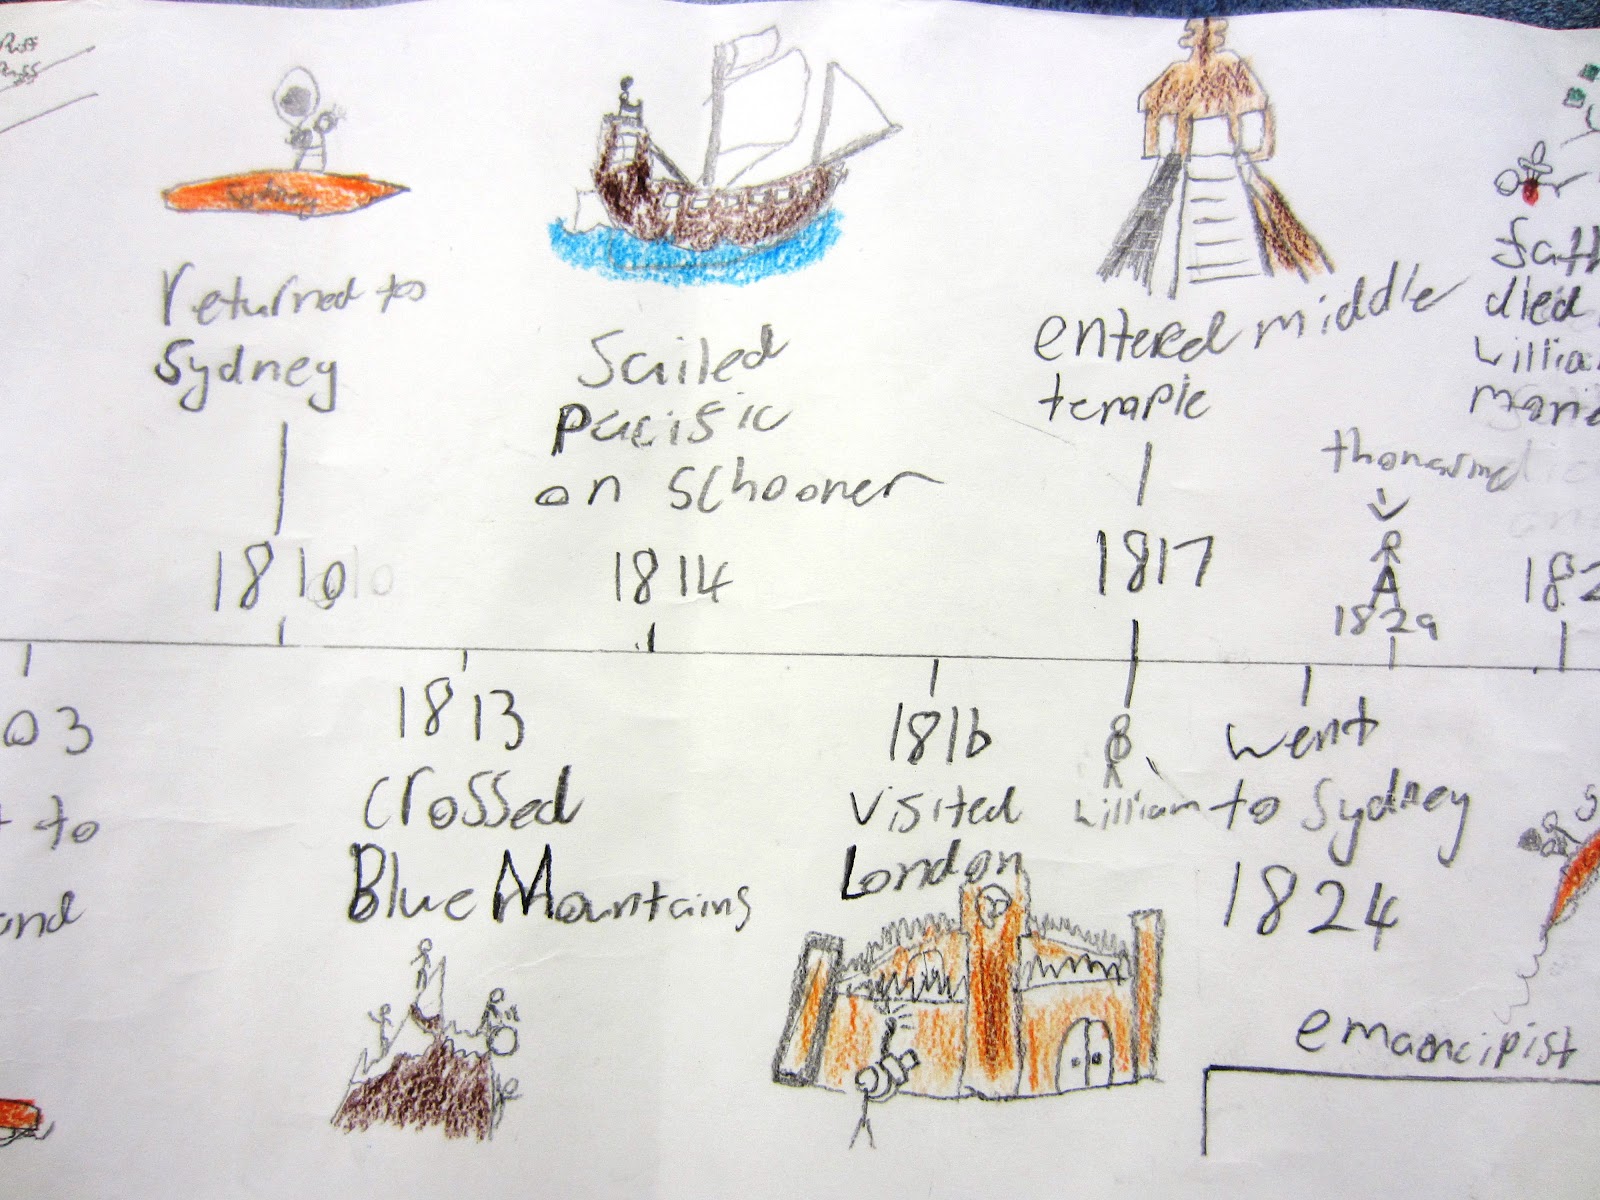 Sydney
returned to
Sydney
1810
Sailed
pacific
on schooner
1814
entered middle
temple
1817
1829
died
03
to
and
1813
crossed
Blue Mountains
1816
visited
London
William
went
to Sydney
1824
emancipist